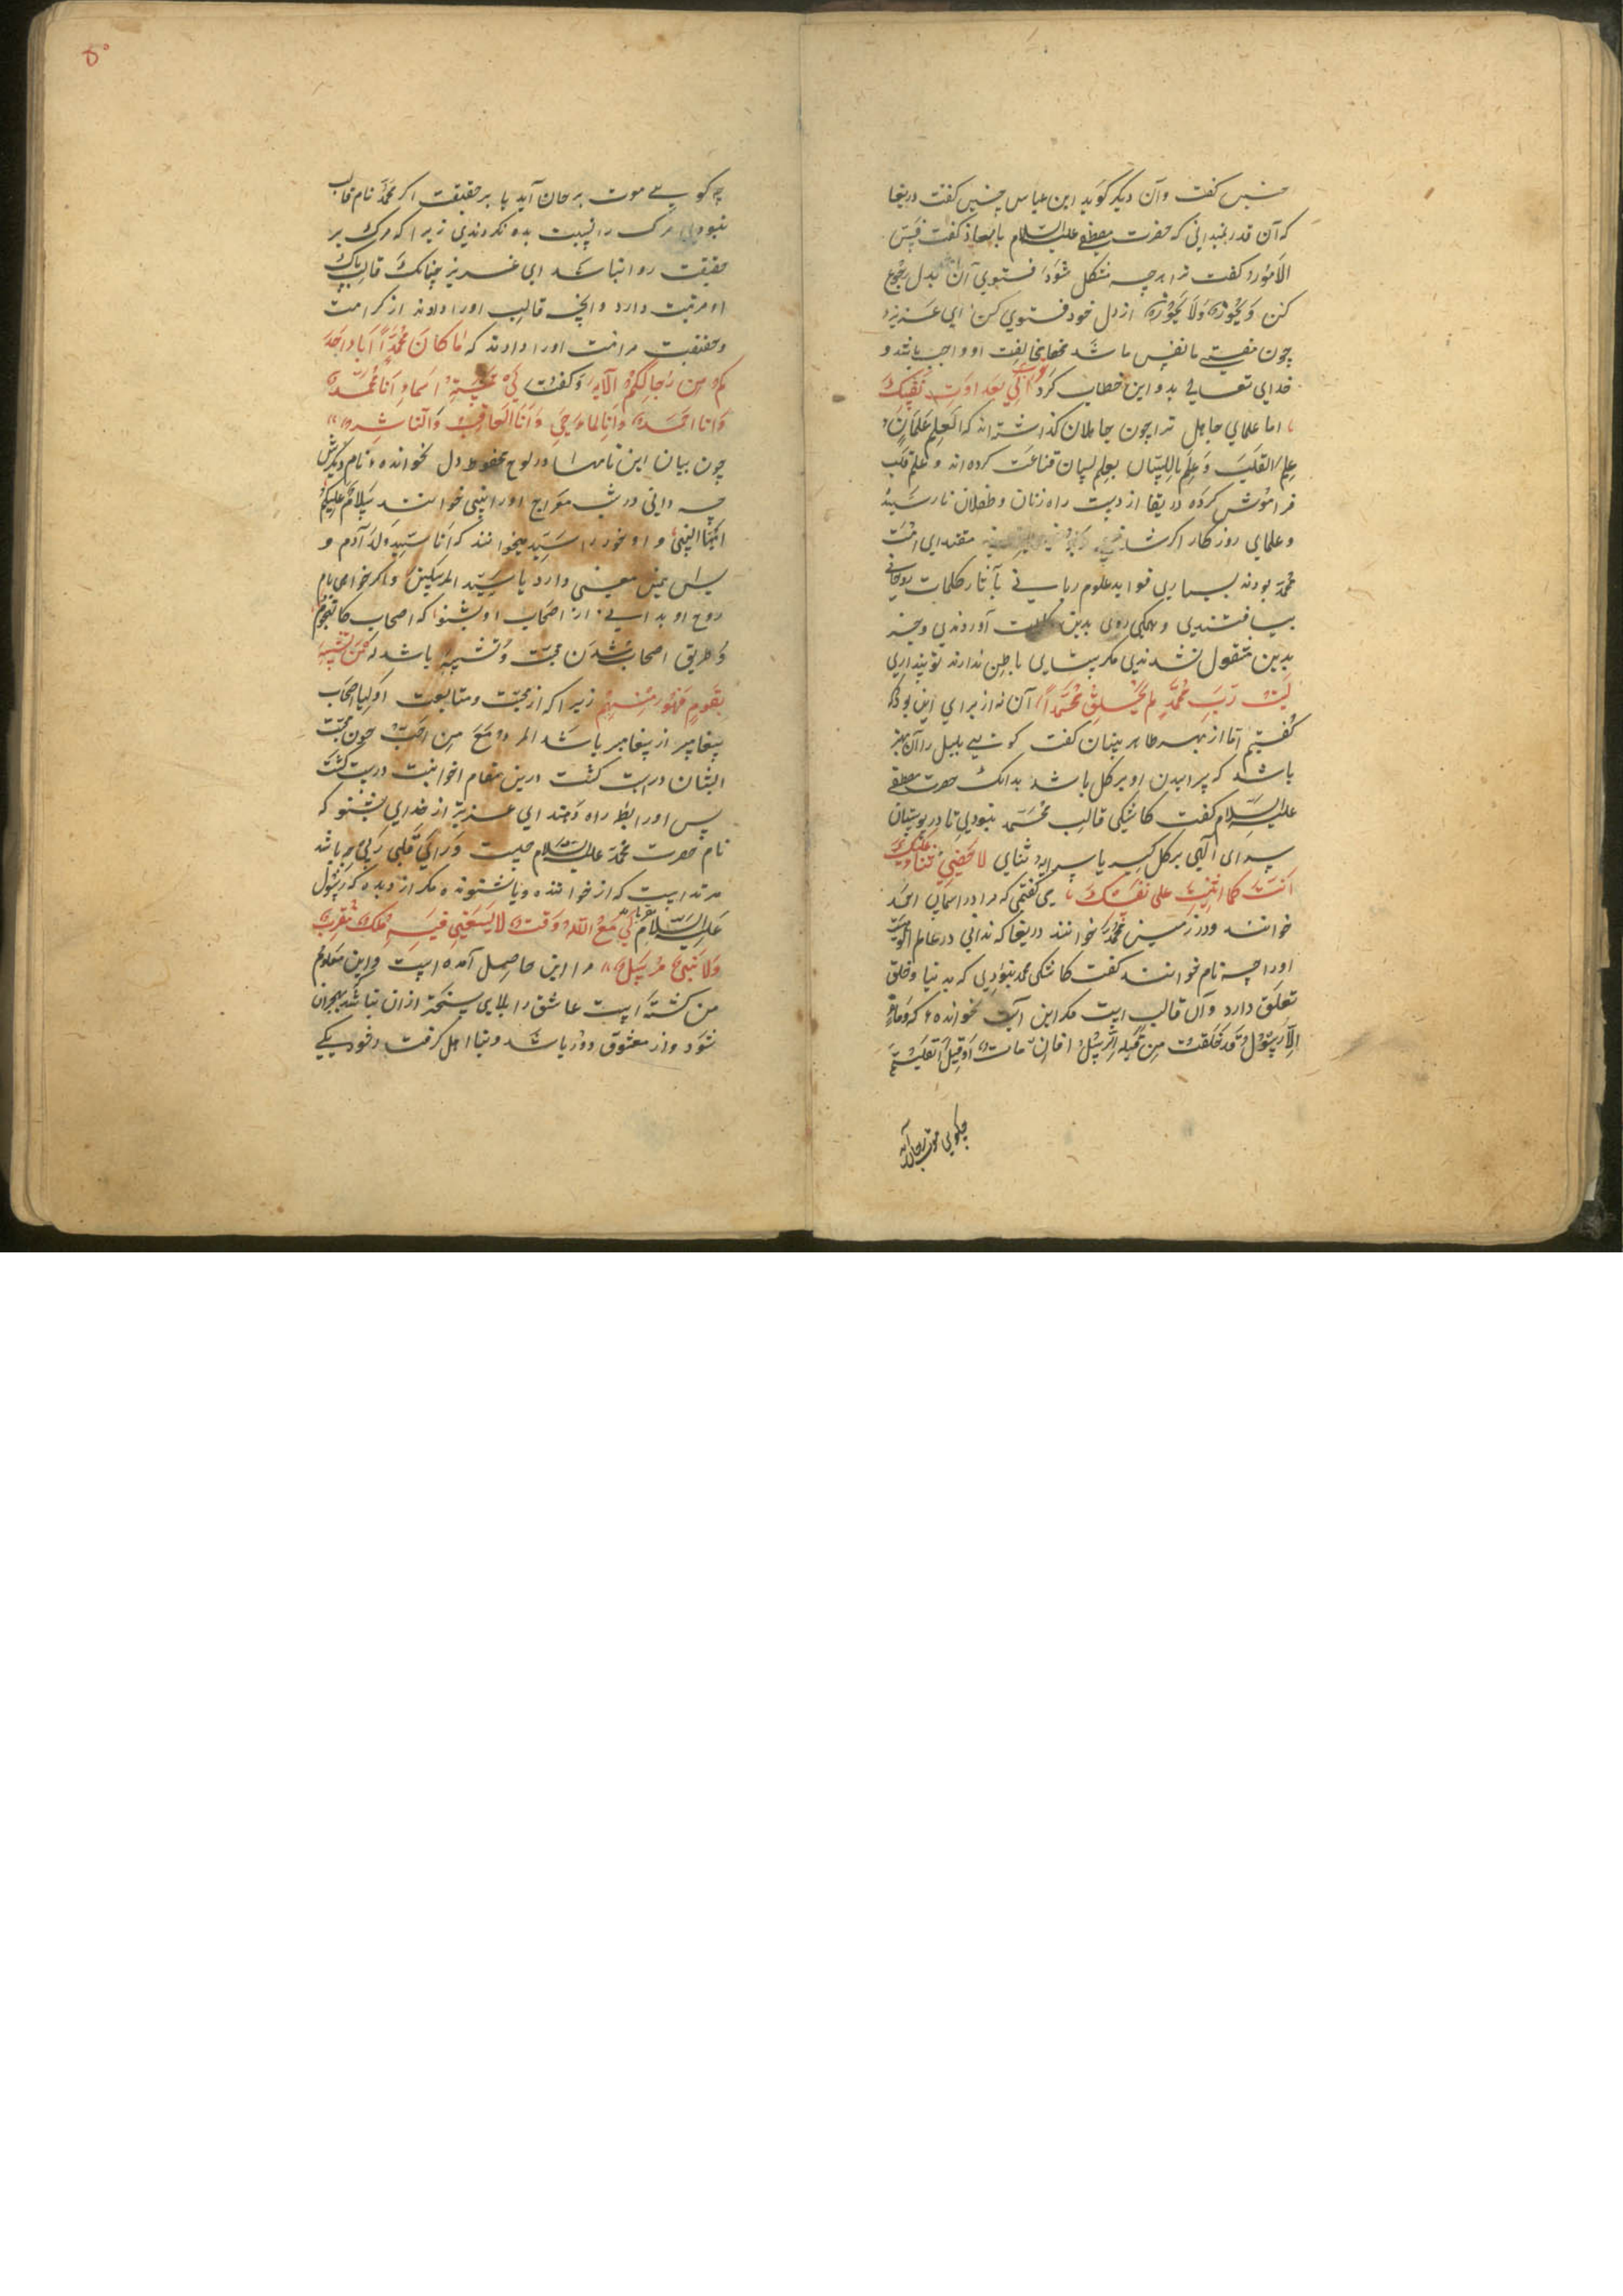 چنین گفت و آن دیگر گوید ابن عباس چنین گفت دریغا
که آن قدر نمیدانی که حضرت مصطفی علیه السلام با معاذ گفت قس
الامور گفت ترا هرچه مشکل شود فستوی آن بدل رجوع
کن و یجوز و لا یجوز از دل خود فستوی کن ای عزیز
چون مفتی ما نفس ما شد مخالفت او واجب باشد و
خدای تعالی بدو این خطاب کرد
اما علمای جاهل ترا چون جاهلان گذاشته اند که العلم علمان
علم القلب و علم باللسان بعلم لسان قناعت کرده اند و علم قلب
فراموش کرده دریغا از دست راه زنان و طفلان نارسیده
و علمای روزگار اگر مقتدای امت
محمد بودند بسیاری فواید علوم ربانی بآثار کلمات
بیافتندی و همگی روی بدین کلمات آوردندی و جز
بدین مشغول نشدندی مگر بینایی باطن ندارند تو پنداری
لیت رب محمد لم یخلق محمدا آن نه از برای این بود که
گفتم اما از بهر ظاهر بینان گفت کوشش بلبل را آن بهتر
باشد که پر ابیدن او بر گل باشد بدانک حضرت مصطفی
علیه السلام گفت کاشکی قالب محمد نبودی تا در بوستان
سرای الهی بر گل ثنای لا احصی ثناء علیک
انت کما اثنیت علی نفسک می گفتمی که مرا در آسمان احمد
خوانند و در زمین محمد خوانند دریغا که ندانی در عالم الوهیت
اورا چه نام خوانند گفت کاشکی محمد نبودی که بدنیا و خلق
تعلق دارد و آن قالب است مگر این آیت نخوانده که و ما محمد
الا رسول قد خلت من قبله الرسل افان مات او قتل انقلبتم
چگویی موت بر جان آید
۵۰
چه گویی موت بر جان آید یا بر حقیقت اگر محمد نام قالب
نبودی مرگ را نسبت بدو نکردندی زیرا که مرگ بر
حقیقت روا نباشد ای عزیز چنانک قالب پاک
او مرتبت دارد و آنچه قالب اورا دادند از کرامت
و حقیقت مرامت اورا دادند که ما کان محمد ابا احد
کم من رجالکم الآیه و گفت لی خمسة اسماء انا محمد
و انا احمد و انا الماحی و انا العاقب و انا الناشر
چون بیان این نامها در لوح محفوظ دل نخوانده نام دیگرش
چه دانی در شب معراج اورا النبی خوانند سلام علیکم
ایها النبی و او خود را سید میخوانند که انا سید ولد آدم و
یس همین معنی دارد یا سید المرسلین و اگر خواهی نام
روح او بدانی از اصحاب او بشنو که اصحاب کالنجوم
و طریق اصحاب شدن محبت و تشبه باشد که من تشبه
بقوم فهو منهم زیرا که از محبت و متابعت اولیا اصحاب
پیغامبر از پیغامبر باشد المرء مع من احب چون محبت
ایشان درست گشت درین مقام اخوانیت درست گشت
پس اورا بط راه دهند ای عزیز از خدای بشنو که
نام حضرت محمد علیه السلام چیست و رای قلبی ربی چه باشد
نه از خواننده و نه از شنونده مگر از دیده که رسول
علیه السلام لی مع الله وقت لا یسعنی فیه ملک مقرب
ولا نبی مرسل مرا این حاصل آمده است و این معلوم
من گشته است عاشق را بلای سخت تر از آن نباشد که هجران
شود و از معشوق دور باشد و نیا اهل گرفت و خود یکی